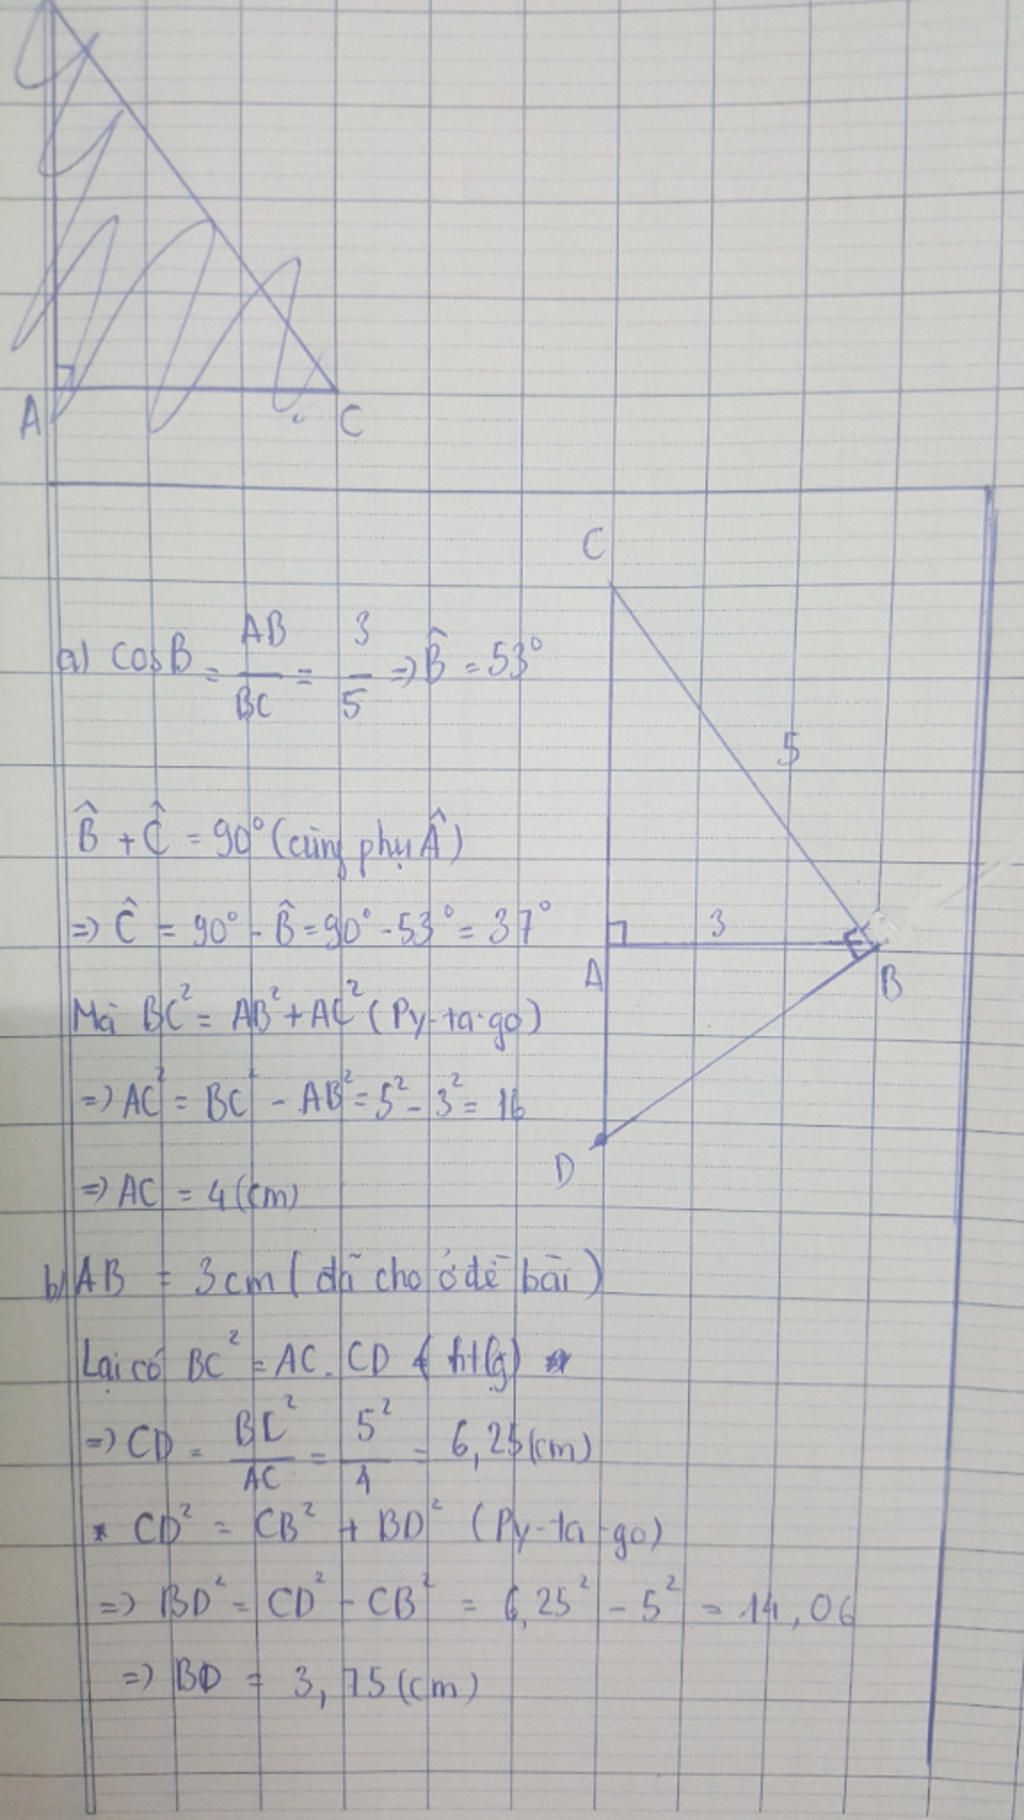 A
C
C
a) cosB = AB/BC = 3/5 => B̂ = 53°
5
B̂ + Ĉ = 90° (cùng phụ Â)
=> Ĉ = 90° - B̂ = 90° - 53° = 37°
3
A
B
Mà BC² = AB² + AC² (Py-ta-go)
=> AC² = BC² - AB² = 5² - 3² = 16
D
=> AC = 4 (cm)
b) AB = 3cm (đã cho ở đề bài)
Lại có BC² = AC . CD (htlg)
=> CD = BC²/AC = 5²/4 = 6,25 (cm)
* CD² = CB² + BD² (Py-ta-go)
=> BD² = CD² - CB² = 6,25² - 5² = 14,06
=> BD = 3,75 (cm)